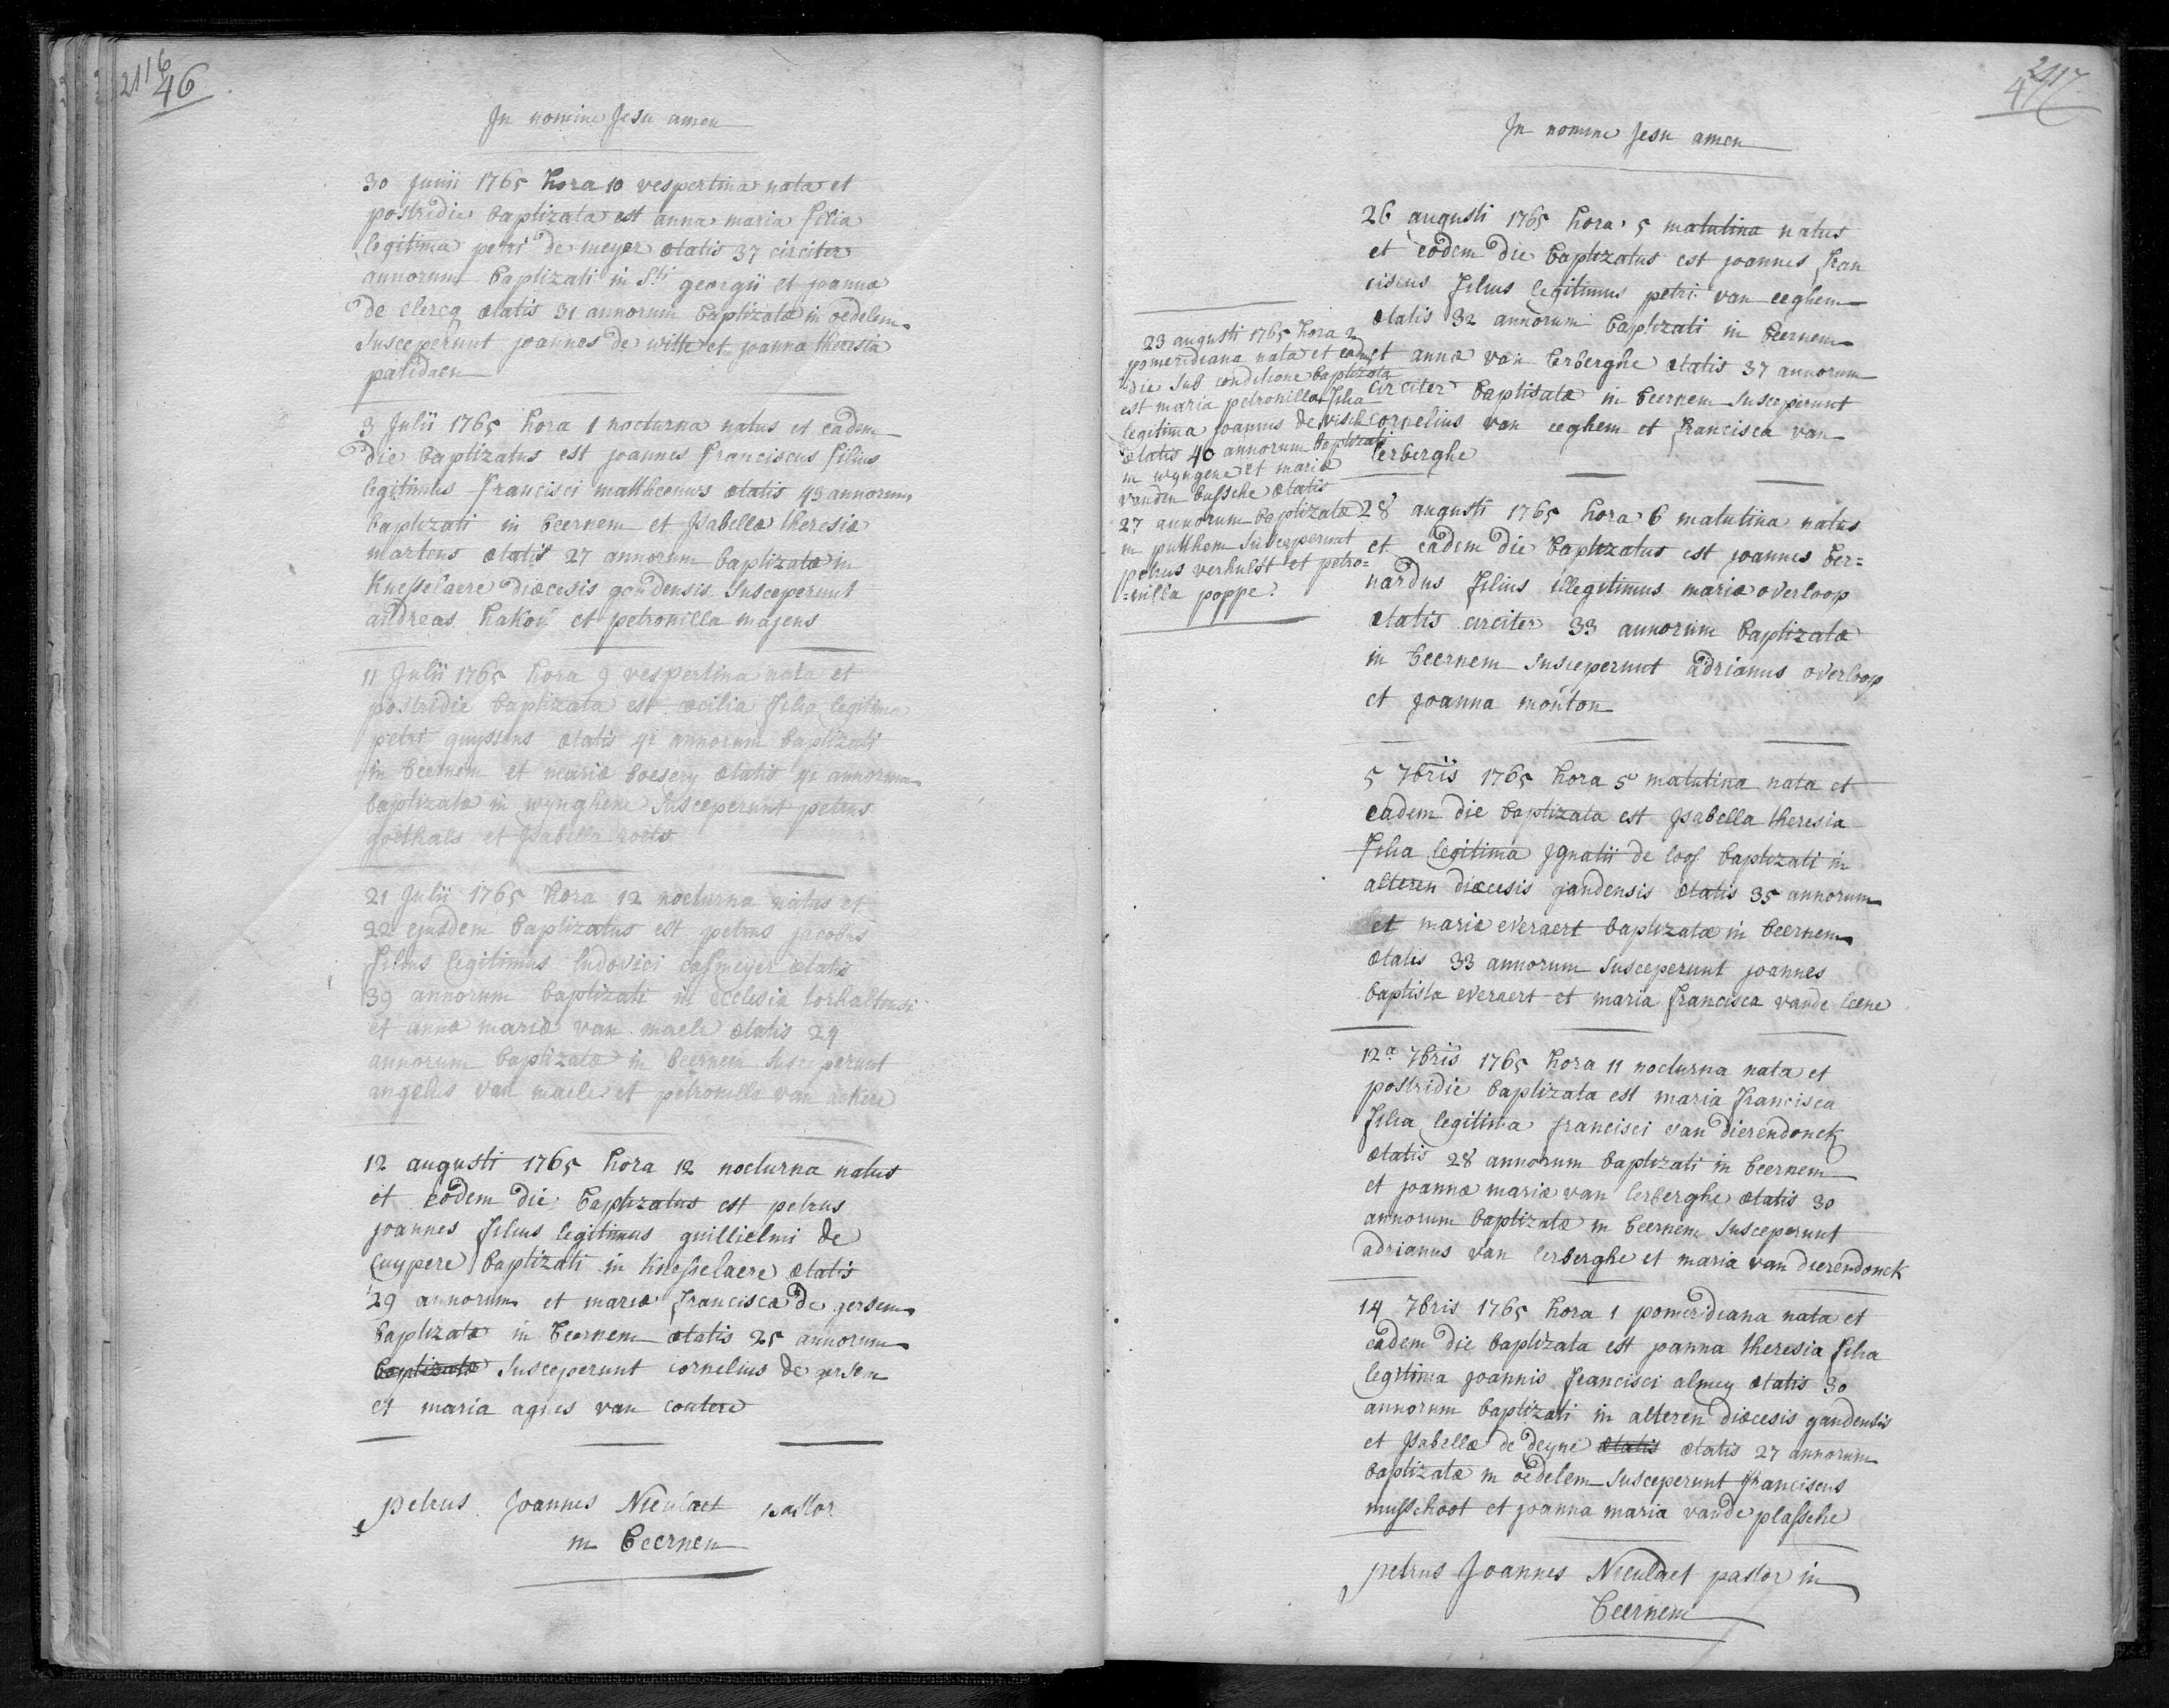 2116
46
In nomine Jesu amen
30 Junii 1765 hora 10 vespertina nata et
postridie baptizata est anna maria filia
legitima petri de meyer ætatis 37 circiter
annorum baptizati in Sti georgii et joannæ
de clercq ætatis 31 annorum baptizatæ in oedelem
susceperunt joannes de witte et joanna theresia
palidaen
3 Julii 1765 hora 1 nocturna natus et eadem
die baptizatus est joannes franciscus filius
legitimus francisci mattheeuws ætatis 43 annorum
baptizati in beernem et Isabellæ theresiæ
martens ætatis 27 annorum baptizatæ in
knesselaere diœcesis gandensis susceperunt
andreas hakou et petronilla majens
11 Julii 1765 hora 9 vespertina nata et
postridie baptizata est cæcilia filia legitima
petri guyssens ætatis 42 annorum baptizati
in beernem et mariæ boesery ætatis 42 annorum
baptizatæ in wynghene susceperunt petrus
goethals et Isabella
21 Julii 1765 hora 12 nocturna natus et
22 ejusdem baptizatus est petrus jacobus
filius legitimus ludovici casmeijer ætatis
39 annorum baptizati in ecclesia torhaltensi
et annæ mariæ van maele ætatis 29
annorum baptizatæ in beernem susceperunt
angelus van maele et petronilla van ackere
12 augusti 1765 hora 12 nocturna natus
et eodem die baptizatus est petrus
joannes filius legitimus guillielmi de
cuypere baptizati in knesselaere ætatis
29 annorum et mariæ franciscæ de jersem
baptizatæ in beernem ætatis 25 annorum
baptizatæ susceperunt cornelius de jersem
et maria agnes van coutere
petrus Joannes Nieulaet pastor
in beernem
2117
47
In nomine Jesu amen
23 augusti 1765 hora 2
pomeridiana nata et eadem
die sub conditione baptizata
est maria petronilla filia
legitima joannis de visch
ætatis 40 annorum baptizati
in wyngene et mariæ
vanden bussche ætatis
27 annorum baptizatæ
in putthem susceperunt
petrus verhulst et petro=
=nilla poppe
26 augusti 1765 hora 5 matutina natus
et eodem die baptizatus est joannes fran
ciscus filius legitimus petri van eeghem
ætatis 32 annorum baptizati in beernem
et annæ van lerberghe ætatis 37 annorum
circiter baptisatæ in beernem susceperunt
cornelius van eeghem et francisca van
lerberghe
28 augusti 1765 hora 6 matutina natus
et eadem die baptizatus est joannes ber=
nardus filius illegitimus mariæ overloop
ætatis circiter 33 annorum baptizatæ
in beernem susceperunt adrianus overloop
et joanna monton
5 7bris 1765 hora 5 matutina nata et
eadem die baptizata est Isabella theresia
filia legitima Ignatii de loof baptizati in
alteren diœcesis gandensis ætatis 35 annorum
et mariæ everaert baptizatæ in beernem
ætatis 33 annorum susceperunt joannes
baptista everaert et maria francisca vande leene
12a 7bris 1765 hora 11 nocturna nata et
postridie baptizata est maria francisca
filia legitima francisci van dierendonck
ætatis 28 annorum baptizati in beernem
et joannæ mariæ van lerberghe ætatis 30
annorum baptizatæ in beernem susceperunt
adrianus van lerberghe et maria van dierendonck
14 7bris 1765 hora 1 pomeridiana nata et
eadem die baptizata est joanna theresia filia
legitima joannis francisci almey ætatis 30
annorum baptizati in alteren diœcesis gandensis
et Isabellæ de deyne ætatis ætatis 27 annorum
baptizatæ in oedelem susceperunt franciscus
musschoot et joanna maria vande plassche
petrus Joannes Nieulaet pastor in
beernem